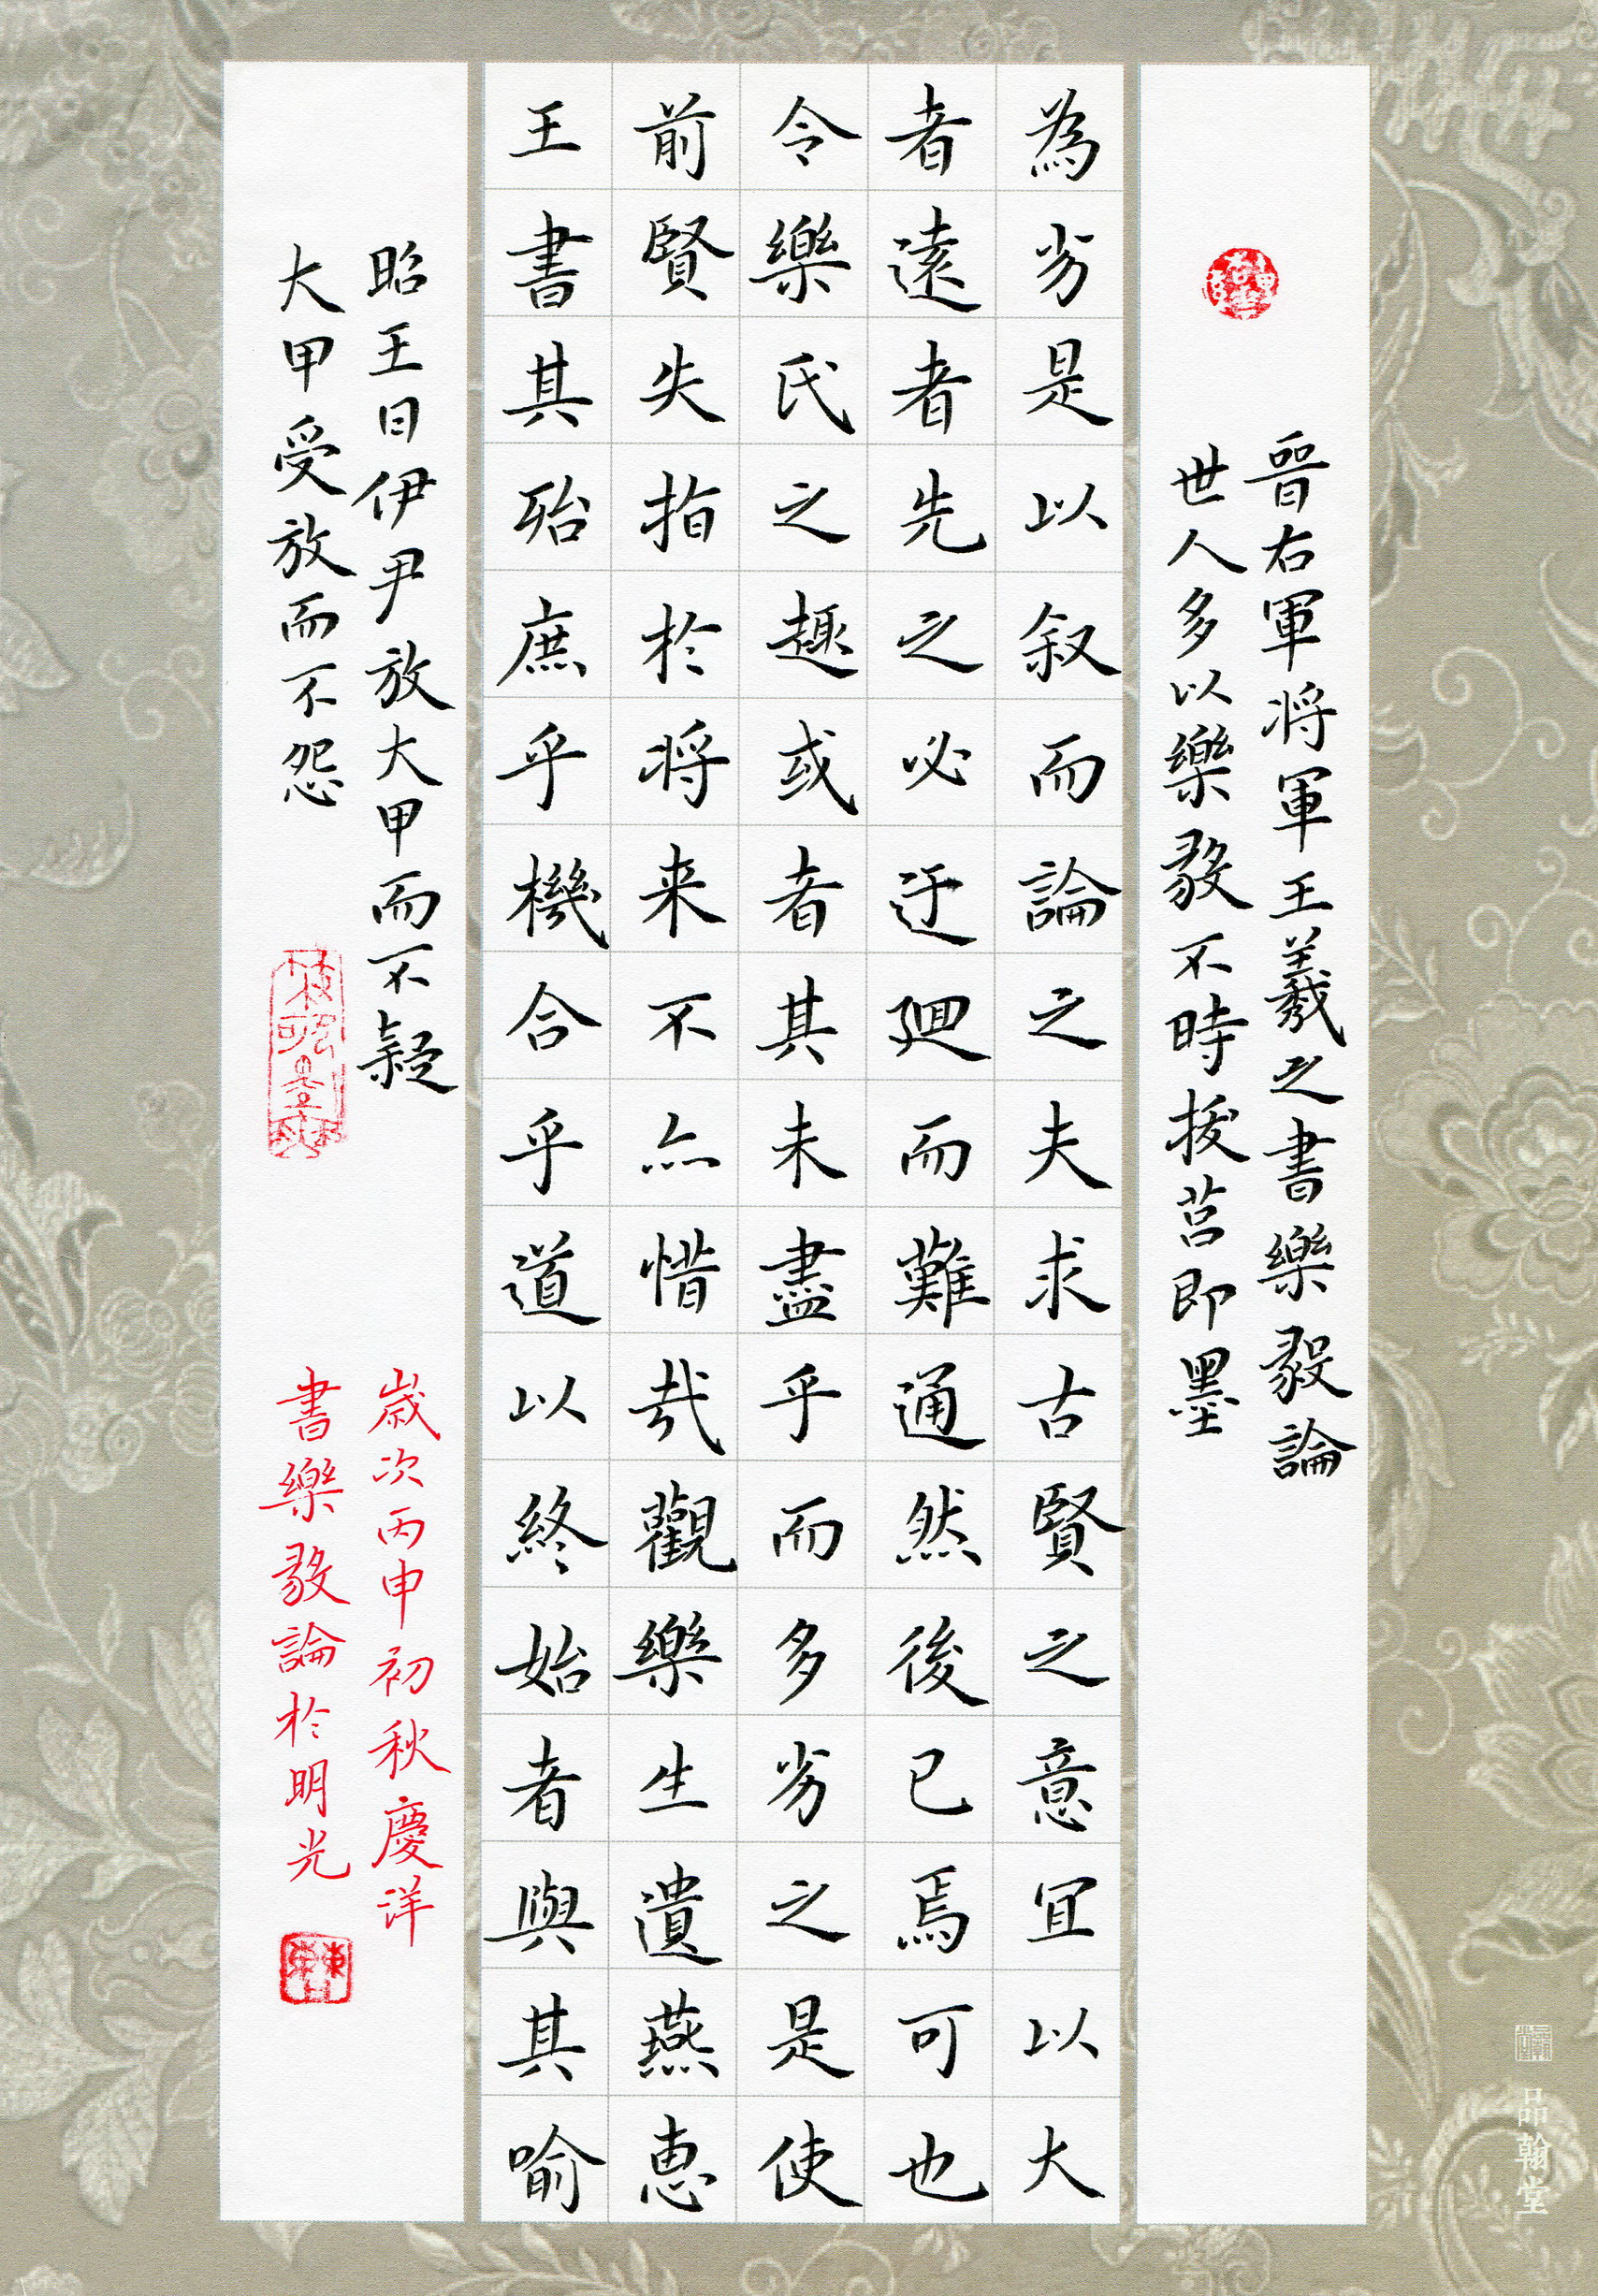 晉右軍將軍王羲之書樂毅論
世人多以樂毅不時拔莒即墨
為劣是以叙而論之夫求古賢之意宜以大
者遠者先之必迂迴而難通然後已焉可也
令樂氏之趣或者其未盡乎而多劣之是使
前賢失指於将来不亦惜哉觀樂生遺燕惠
王書其殆庶乎機合乎道以終始者與其喻
昭王曰伊尹放大甲而不疑
大甲受放而不怨
歲次丙申初秋慶洋
書樂毅論於明光
品翰堂